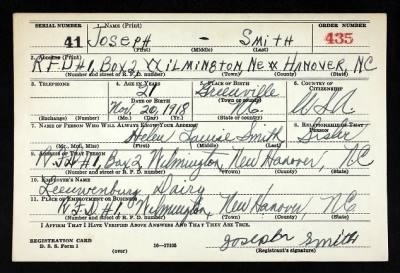 SERIAL NUMBER 1. NAME (Print) ORDER NUMBER
41 JOSEPH - SMITH 435
(First) (Middle) (Last)
2. ADDRESS (Print)
R.F.D #1, BOX 2 WILMINGTON NEW HANOVER, NC
(Number and street or R. F. D. number) (Town) (County) (State)
3. TELEPHONE 4. AGE IN YEARS 5. PLACE OF BIRTH 6. COUNTRY OF CITIZENSHIP
21 Greenville
DATE OF BIRTH (Town or county)
Nov. 20, 1918 NC. USA
(Exchange) (Number) (Mo.) (Day) (Yr.) (State or country)
7. NAME OF PERSON WHO WILL ALWAYS KNOW YOUR ADDRESS 8. RELATIONSHIP OF THAT PERSON
Helen Louise Smith Sister
(Mr., Mrs., Miss) (First) (Middle) (Last)
9. ADDRESS OF THAT PERSON
R.F.D #1, Box 2 Wilmington, New Hanover, NC
(Number and street or R. F. D. number) (Town) (County) (State)
10. EMPLOYER'S NAME
Leeuwenburg Dairy
11. PLACE OF EMPLOYMENT OR BUSINESS
R.F.D #1 Wilmington, New Hanover, NC
(Number and street or R. F. D. number) (Town) (County) (State)
I AFFIRM THAT I HAVE VERIFIED ABOVE ANSWERS AND THAT THEY ARE TRUE.
REGISTRATION CARD
D. S. S. Form 1 (over) 16-17105 Joseph Smith
(Registrant's signature)